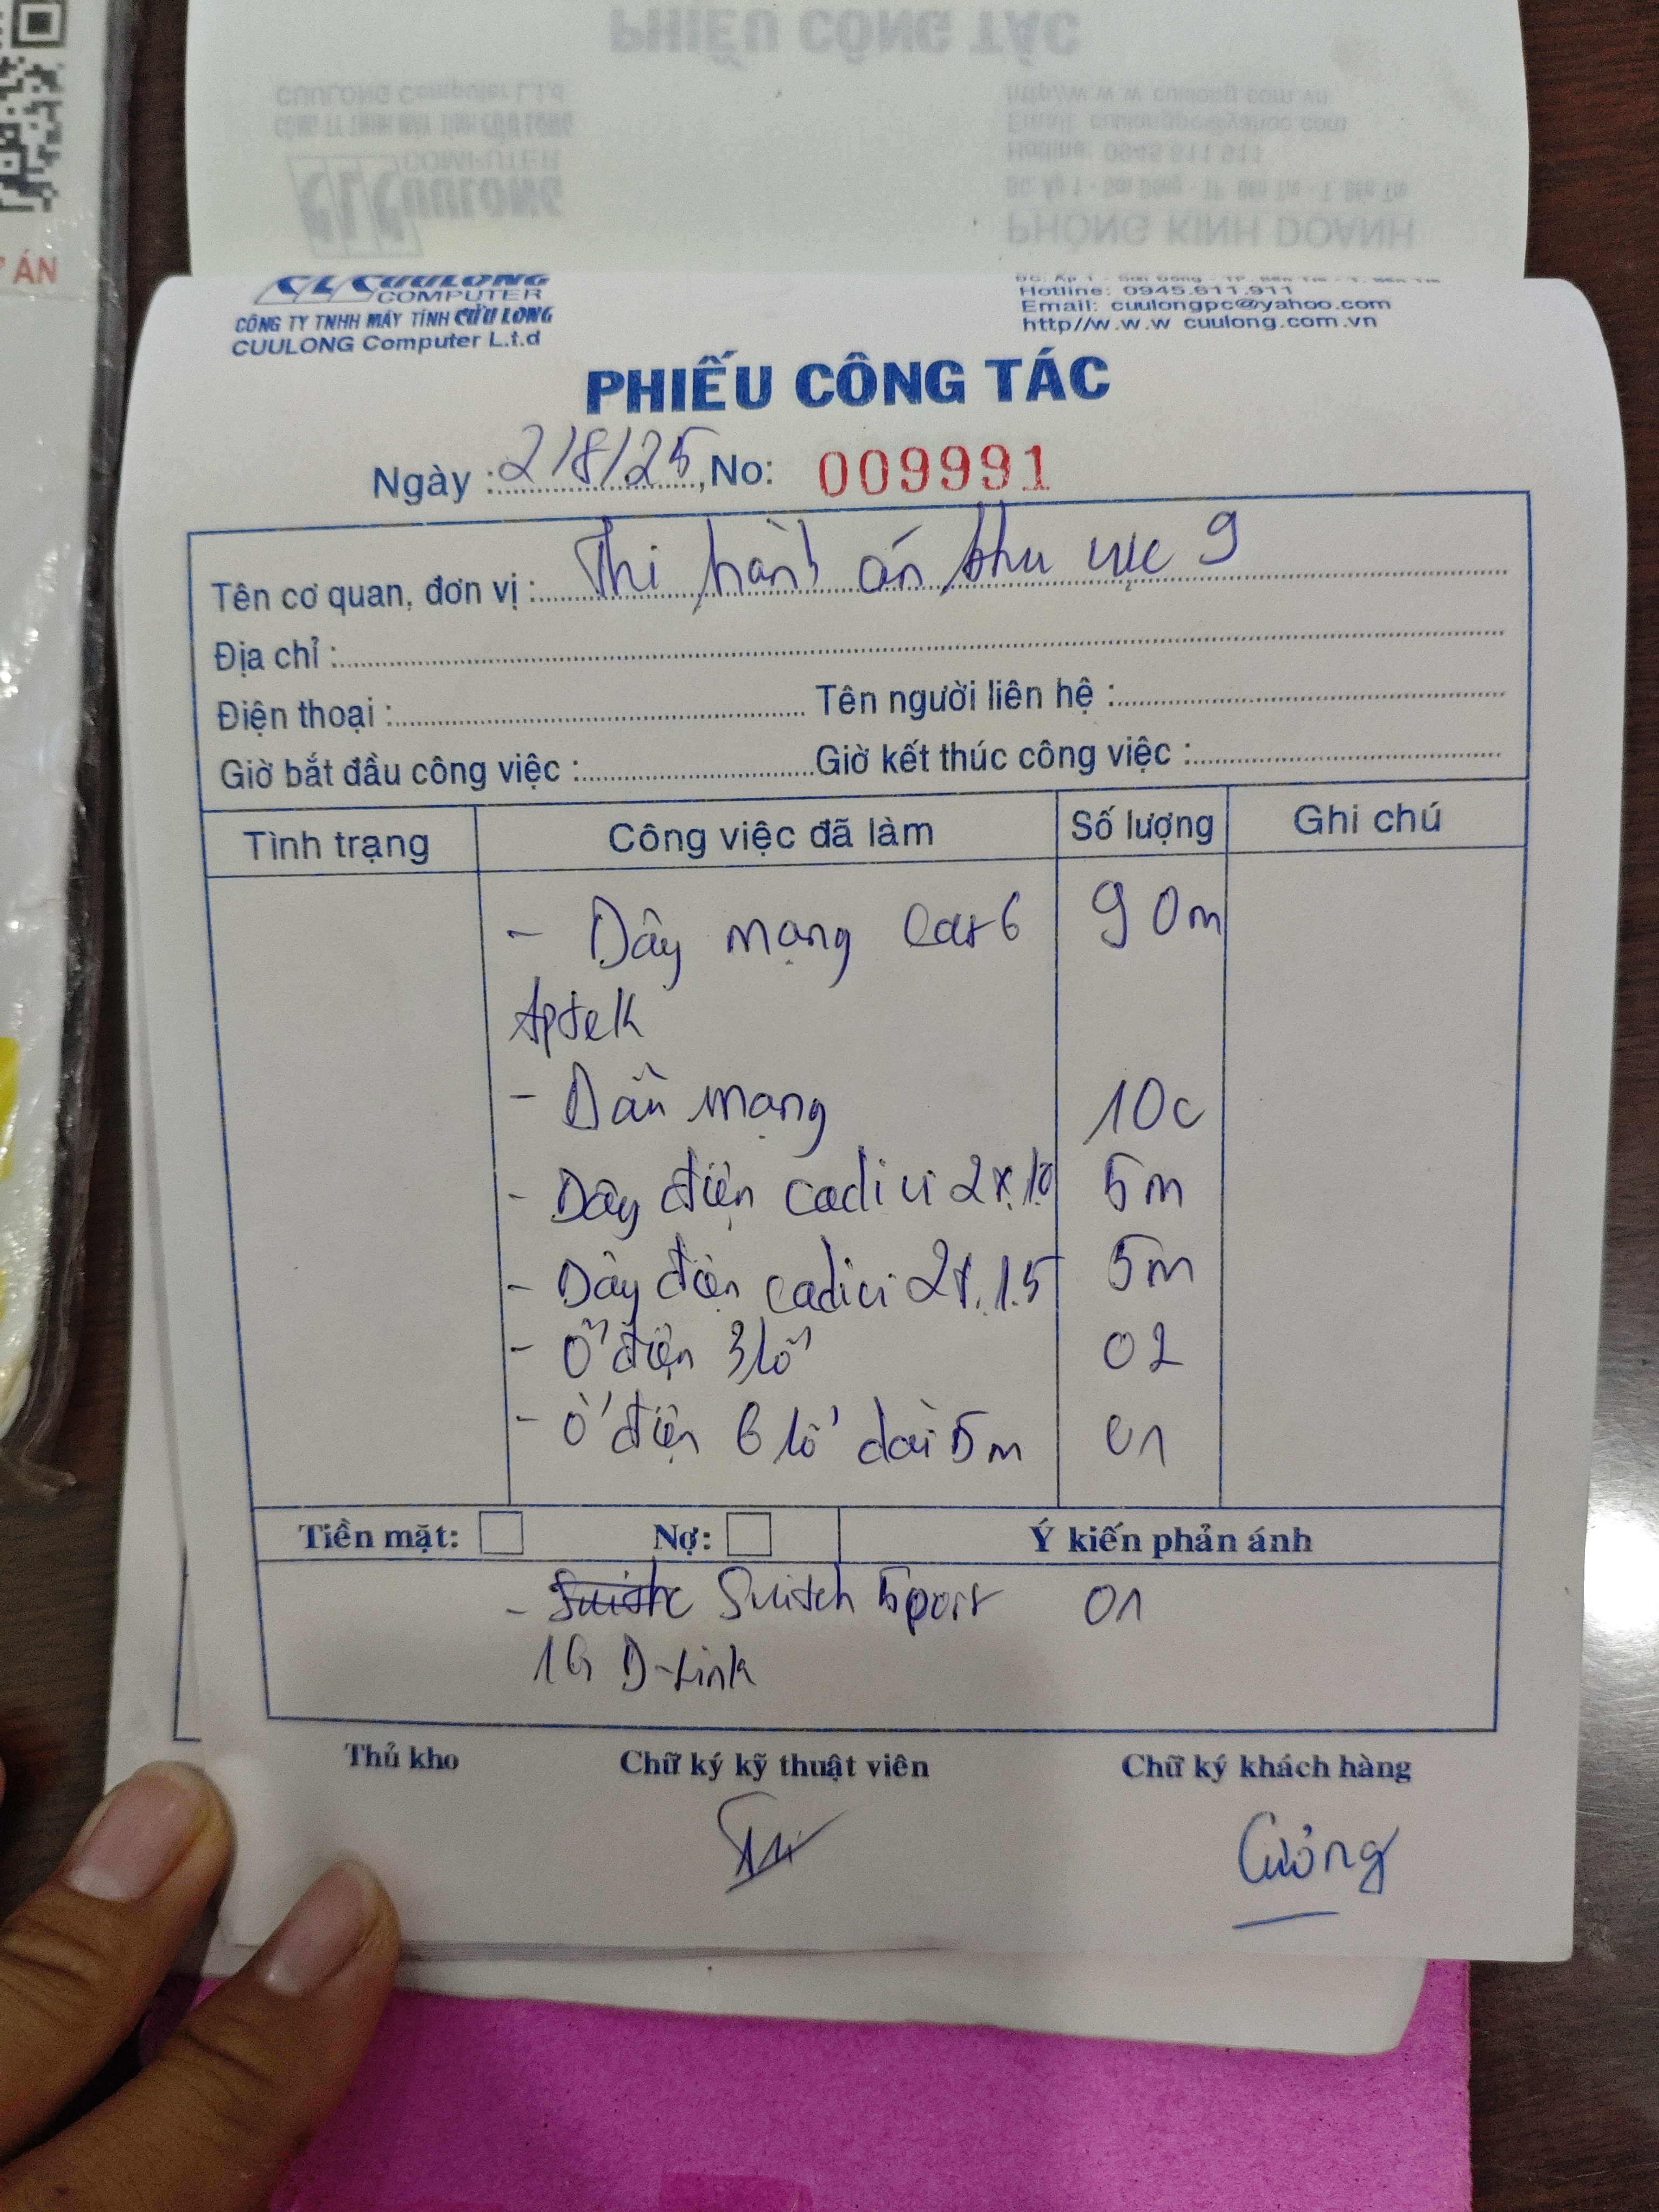 PHIẾU CÔNG TÁC
CUULONG Computer L.t.d
CÔNG TY TNHH MÁY TÍNH CỬU LONG
COMPUTER
CL CUULONG
http//w w w cuulong com vn
Email: cuulongpc@yahoo com
Hotline: 0945 611 911
ĐC: Ấp 1 - Sơn Đông - TP. Bến Tre - T. Bến Tre
PHÒNG KINH DOANH
ÁN
CL CUULONG
COMPUTER
CÔNG TY TNHH MÁY TÍNH CỬU LONG
CUULONG Computer L.t.d
ĐC: Ấp 1 - Sơn Đông - TP. Bến Tre - T. Bến Tre
Hotline: 0945.611.911
Email: cuulongpc@yahoo.com
http//w.w.w cuulong.com.vn
PHIẾU CÔNG TÁC
Ngày : 2/8/25, No: 009991
Tên cơ quan, đơn vị : Thi hành án khu vực 9
Địa chỉ :
Điện thoại : Tên người liên hệ :
Giờ bắt đầu công việc : Giờ kết thúc công việc :
Tình trạng Công việc đã làm Số lượng Ghi chú
- Dây mạng Cat6 90m
Aptek
- Đầu mạng 10c
- Dây điện cadivi 2x.10 5m
- Dây điện cadivi 2x.1.5 5m
- Ổ điện 3 lỗ 02
- Ổ điện 6 lỗ dài 5m 01
Tiền mặt: Nợ: Ý kiến phản ánh
- Switch 5port 01
1G D-Link
Thủ kho Chữ ký kỹ thuật viên Chữ ký khách hàng